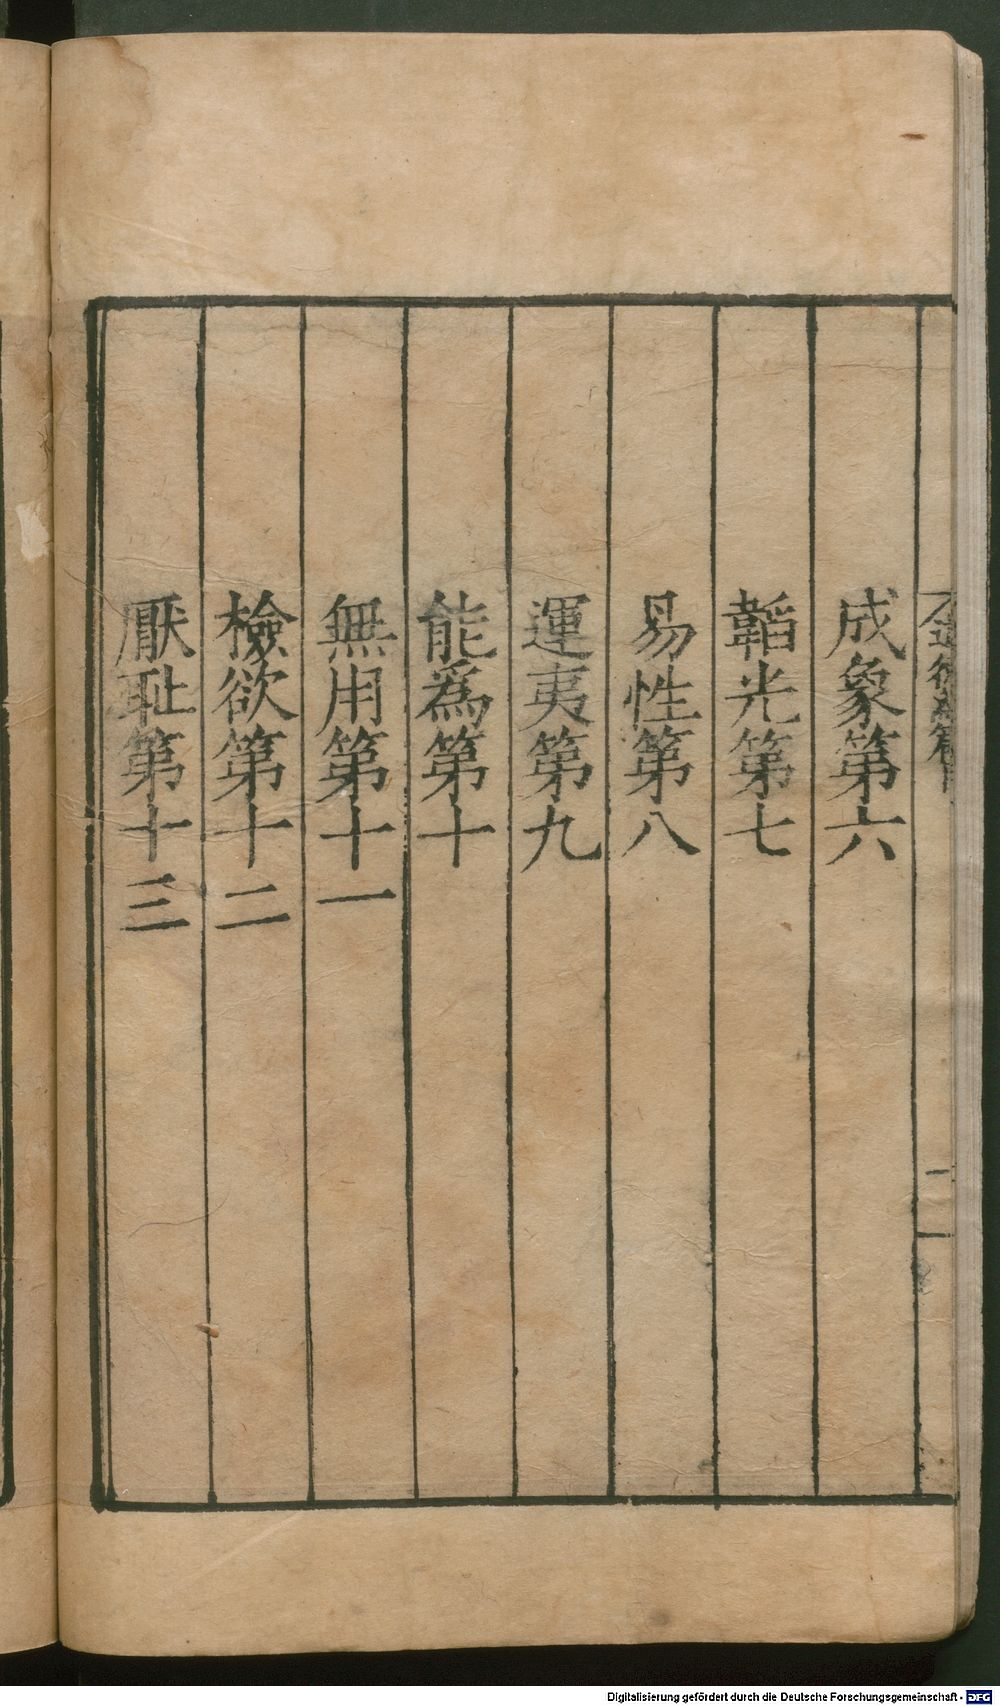 成象第六
韜光第七
易性第八
運夷第九
能爲第十
無用第十一
檢欲第十二
厭恥第十三
二
Digitalisierung gefördert durch die Deutsche Forschungsgemeinschaft - DFG